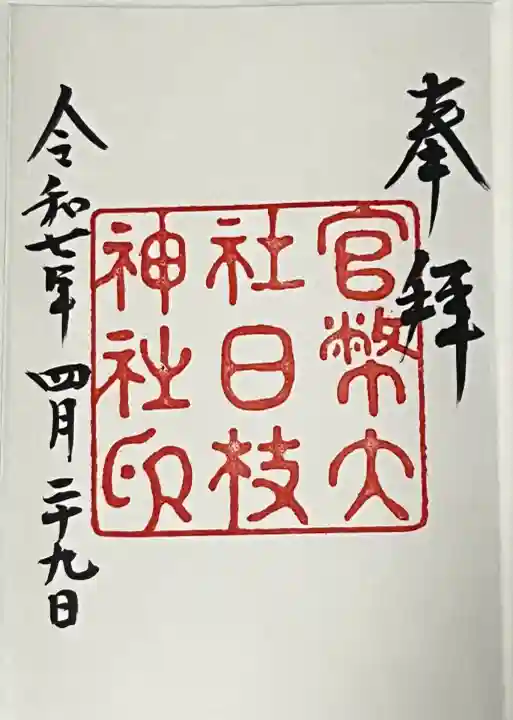 奉拝
官幣大
社日枝
神社印
令和七年 四月 二十九日